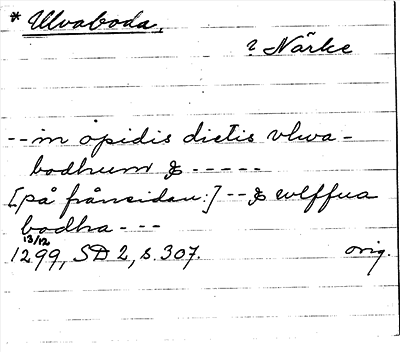 * Ulvaboda.
? Närke
-- in opidis dictis vlwa-
bodhum & -----
[på frånsidan:] -- & wlffua
bodha ---
13/12
1299, SD 2, s. 307. orig.